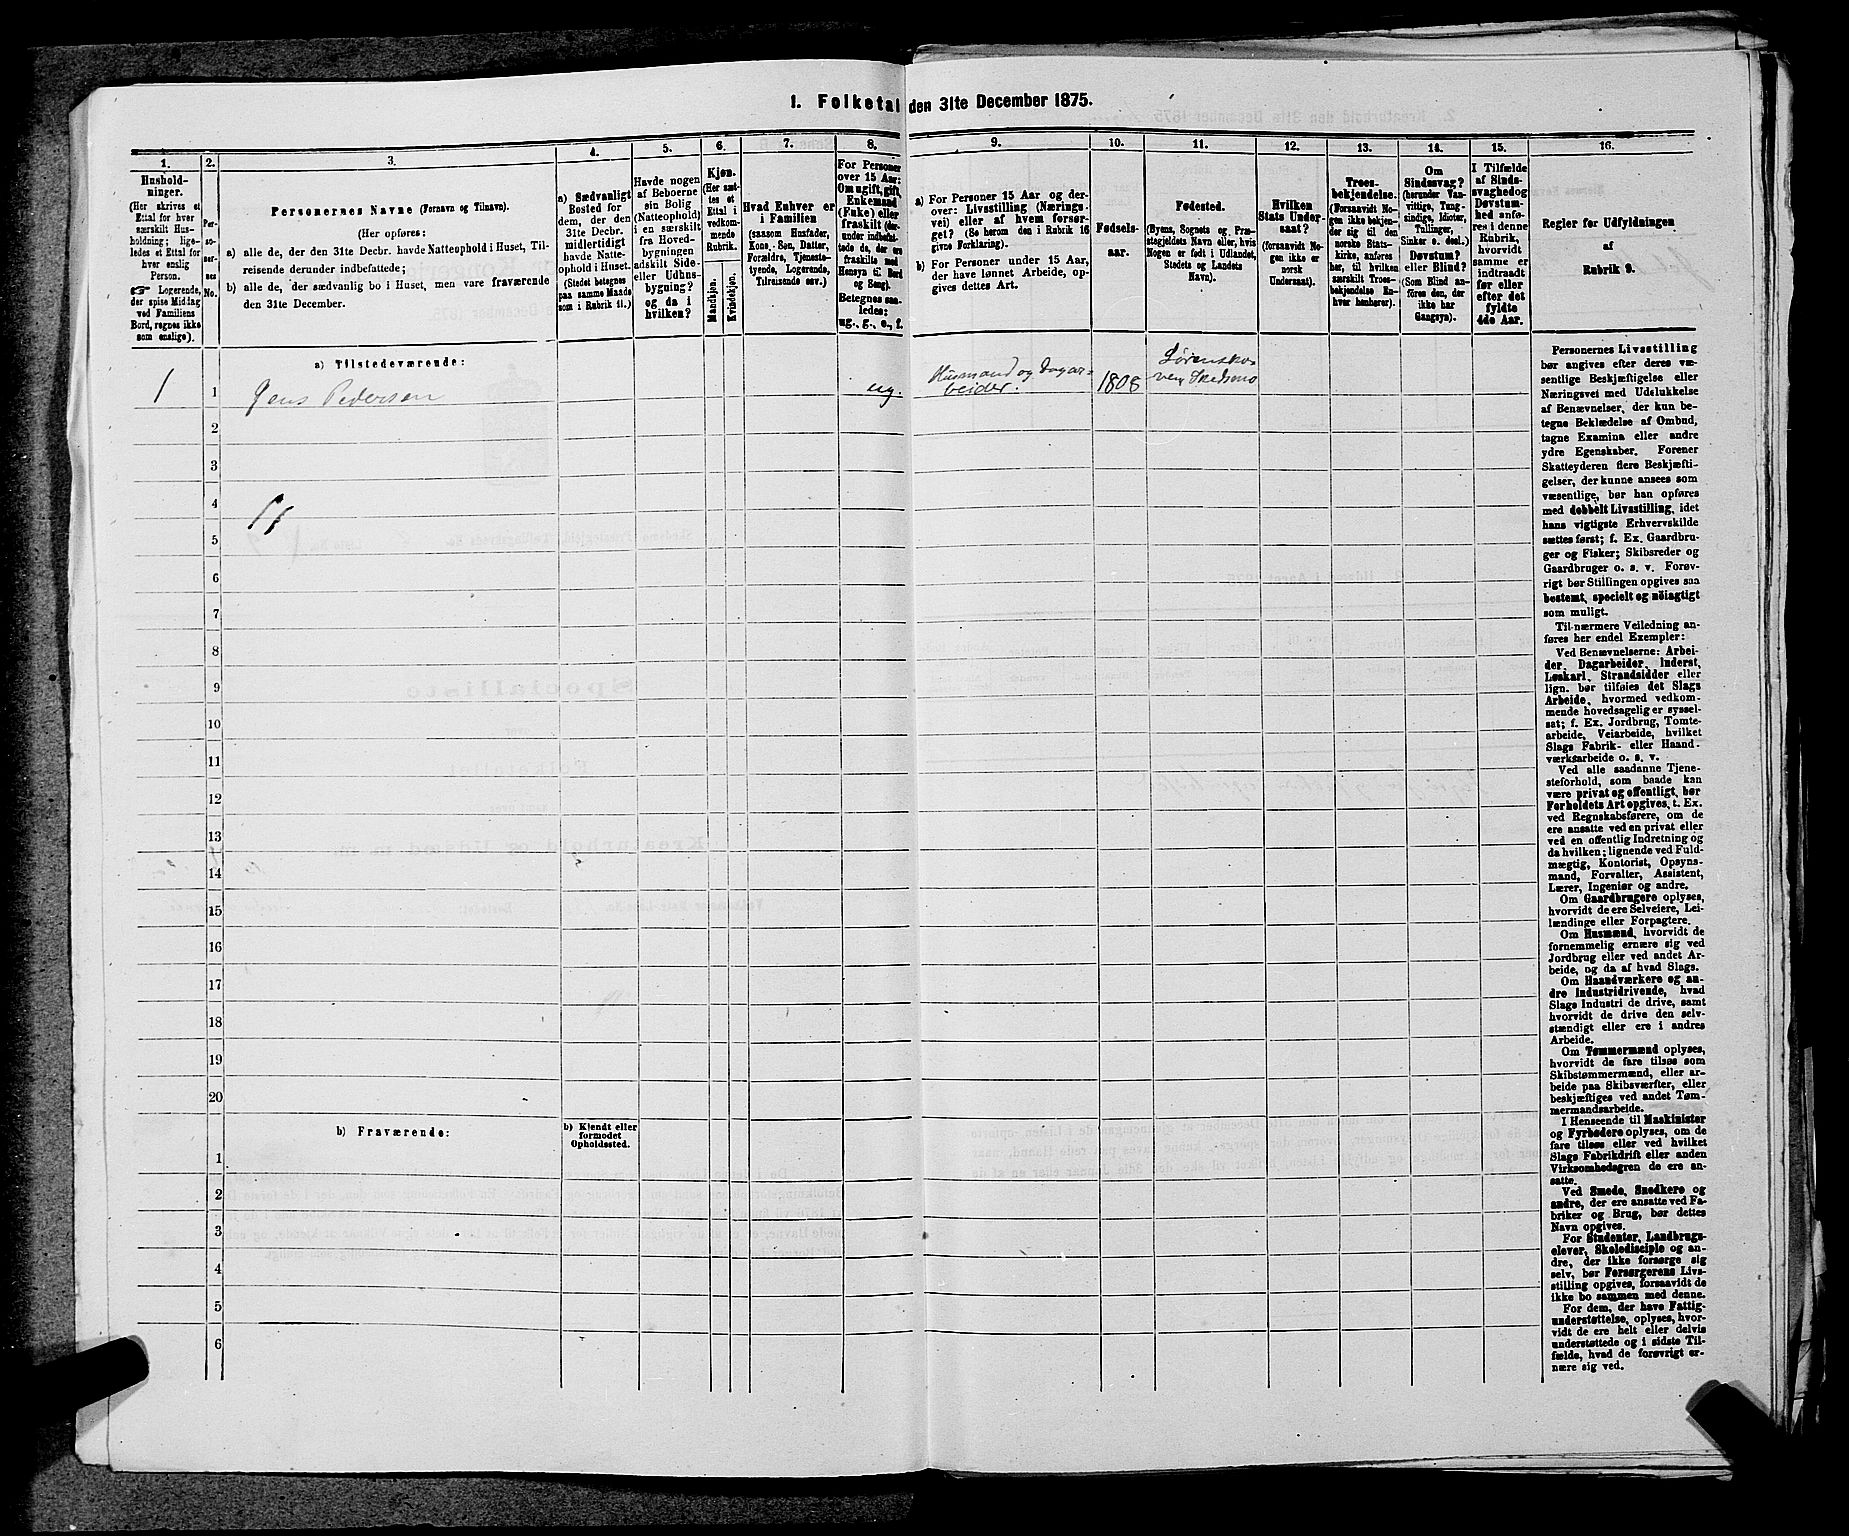 1. Folketal den 31te December 1875.
1.
2.
3.
4.
5.
6.
7.
8.
9.
10.
11.
12.
13.
14.
15.
16.
Hushold-
ninger.
(Her skrives et
Ettal for hver
særskilt Hus-
holdning; lige-
ledes et Ettal for
hver enslig
Person.
☞ Logerende,
der spise Middag
ved Familiens
Bord, regnes ikke
som enslige).
Per-
so-
ner-
nes
No.
Personernes Navne (Fornavn og Tilnavn).
(Her opføres:
a) alle de, der den 31te Decbr. havde Natteophold i Huset, Til-
reisende derunder indbefattede;
b) alle de, der sædvanlig bo i Huset, men vare fraværende
den 31te December.
a) Sædvanligt
Bosted for
dem, der den
31te Decbr.
midlertidigt
havde Natte-
ophold i Huset.
(Stedet betegnes
paa samme Maade
som i Rubrik 11.)
Havde nogen
af Beboerne
sin Bolig
(Natteophold)
i en særskilt
fra Hoved-
bygningen
adskilt Side-
eller Udhus-
bygning?
og da i
hvilken?
Kjøn.
(Her sæt-
tes et
Ettal i
vedkom-
mende
Rubrik.
Mandkjøn.
Kvindekjøn.
Hvad Enhver er
i Familien
(saasom Husfader,
Kone, Søn, Datter,
Forældre, Tjeneste-
tyende, Logerende,
Tilreisende osv.)
For Personer
over 15 Aar:
Om ugift, gift,
Enkemand
(Enke) eller
fraskilt (der-
under indbefat-
tede de, der ere
fraskilte med
Hensyn til Bord
og Seng).
Betegnes saa-
ledes:
ug., g., e., f.
a) For Personer 15 Aar og der-
over: Livsstilling (Nærings-
vei) eller af hvem forsør-
get? (Se herom den i Rubrik 16
givne Forklaring).
b) For Personer under 15 Aar,
der have lønnet Arbeide, op-
gives dettes Art.
Fødsels-
aar.
Fødested.
(Byens, Sognets og Præ-
stegjeldets Navn eller, hvis
Nogen er født i Udlandet,
Stedets og Landets
Navn).
Hvilken
Stats Under-
saat?
(forsaavidt No-
gen ikke er
norsk
Undersaat).
Troes-
bekjendelse.
(Forsaavidt No-
gen ikke bekjen-
der sig til den
norske Stats-
kirke, anføres
her, til hvilken
særskilt Troes-
bekjendelse En-
hver henhører).
Om
Sindssvag?
(herunder Van-
vittige, Tung-
sindige, Idioter,
Tullinger,
Sinker o. desl.)
Døvstum?
eller Blind?
(Som Blind an-
føres den, der
ikke har
Gangsyn).
I Tilfælde
af Sinds-
svaghed og
Døvstum-
hed anfø-
res i denne
Rubrik,
hvorvidt
samme er
indtraadt
før eller
efter det
fyldte
4de Aar.
Regler for Udfyldningen
af
Rubrik 9.
a) Tilstedeværende:
1 1 Jens Pedersen ug. Husmand og Dagar-
beider. 1808 Lørensko-
ven Skedsmo
2
3
4
5
6
7
8
9
10
11
12
13
14
15
16
17
18
19
20
b) Fraværende:
b) Kjendt eller
formodet
Opholdssted.
1
2
3
4
5
6
Personernes Livsstilling
bør angives efter deres væ-
sentlige Beskjæftigelse eller
Næringsvei med Udelukkelse
af Benævnelser, der kun be-
tegne Beklædelse af Ombud,
tagne Examina eller andre
ydre Egenskaber. Forener
Skatteyderen flere Beskjæfti-
gelser, der kunne ansees som
væsentlige, bør han opføres
med dobbelt Livsstilling, idet
hans vigtigste Erhvervskilde
sættes først; f. Ex. Gaardbru-
ger og Fisker; Skibsreder og
Gaardbruger o. s. v. Forøv-
rigt bør Stillingen opgives saa
bestemt, specielt og nöiagtigt
som muligt.
Til nærmere Veiledning an-
føres her endel Exempler:
Ved Benævnelserne: Arbei-
der, Dagarbeider, Inderst,
Løskarl, Strandsidder eller
lign. bør tilføies det Slags
Arbeide, hvormed vedkom-
mende hovedsagelig er syssel-
sat; f. Ex. Jordbrug, Tomte-
arbeide, Veiarbeide, hvilket
Slags Fabrik- eller Haand-
værksarbeide o. s. v.
Ved alle saadanne Tjene-
steforhold, som baade kan
være privat og offentligt, bør
Forholdets Art opgives, t. Ex.
ved Regnskabsførere, om de
ere ansatte ved en privat eller
ved en offentlig Indretning og
da hvilken; lignende ved Fuld-
mægtig, Kontorist, Opsyns-
mand, Forvalter, Assistent,
Lærer, Ingeniør og andre.
Om Gaardbrugere oplyses,
hvorvidt de ere Selveiere, Lei-
lændinge eller Forpagtere.
Om Husmænd, hvorvidt de
fornemmelig ernære sig ved
Jordbrug eller ved andet Ar-
beide, og da af hvad Slags.
Om Haandværkere og an-
dre Industridrivende, hvad
Slags Industri de drive, samt
hvorvidt de drive den selv-
stændigt eller ere i andres
Arbeide.
Om Tømmermænd oplyses,
hvorvidt de fare tilsøs som
Skibstømmermænd, eller ar-
beide paa Skibsværfter, eller
beskjæftiges ved andet Tøm-
mermandsarbeide.
I Henseende til Maskinister
og Fyrbødere oplyses, om de
fare tilsøs eller ved hvilket
Slags Fabrikdrift eller anden
Virksomhedsgren de ere an-
satte.
Ved Smede, Snedkere og
andre, der ere ansatte ved Fa-
briker og Brug, bør dettes
Navn opgives.
For Studenter, Landbrugs-
elever, Skoledisciple og an-
dre, der ikke forsørge sig
selv, bør Forsørgerens Livs-
stilling opgives, forsaavidt de
ikke bo sammen med denne.
For dem, der have Fattig-
understøttelse, oplyses, hvor-
vidt de ere helt eller delvis
understøttede og i sidste Til-
fælde, hvad de forøvrigt er-
nære sig ved.